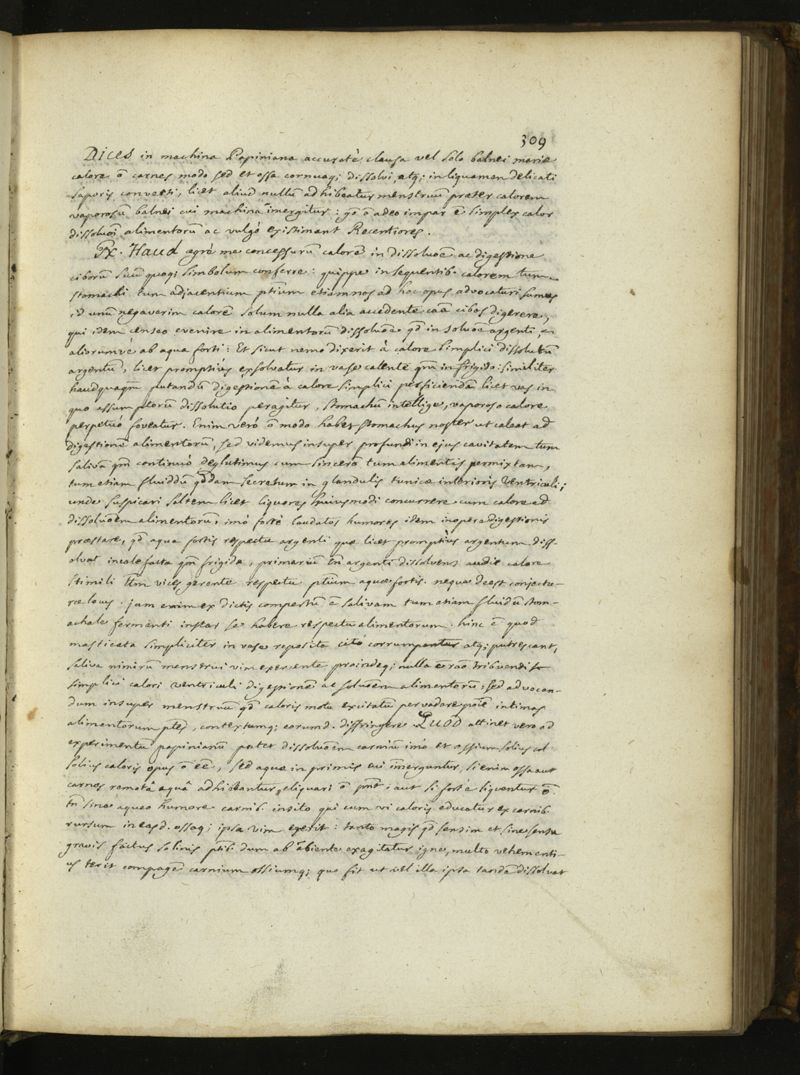 309
DICES in machina Papiniana accuratè clausa vel solo balnei mariæ
calore ō carnes modo sed et ossa cornuaq; dissolvi atq; in liquamen delicati
saporis converti, licet aliud nullū adhibeatur menstruū præter calorem
vaporosū balnei cui machina īmergitur: gō ō adeo impar ē simplex calor
dissoluōi alimentorū ac vulgò existimant Recentiores.
Rx. Haud ægrè me concessurū calorē in dissoluōe ac digestione
ciborū suū quoq; simbolum conferre: quippe in sequentib. calorem tum
stomachi tum adjacentium ptium etiamnos ad hoc opus advocaturi sumus
id unū negaverim calorē solum nulla alia accedente caā cibos digerere,
qui idem censeo evenire in alimentorū dissoluōe qd in soluōe argenti
aliorumvè ab aqua forti: Et sicut nemo dixerit à calore simplici dissolutū
argentū, licet promptiùs exsolvatur in vase calente qm in frigido: similiter
haudquaqm putandū digestionē à calore simplici perficiendā licet vas in
quo assumptorū dissolutio peragitur, stomachū intellige, vaporoso calore
perpetuò foveatur. Enim verò ō modo habet stomachus noster ut caleat ad
digestionē alimentorū, sed videmus insuper profundi in ejus cavitatem tum
salivā qm continuò deglutimus cum sincerā tum alimentis permixtam,
tum etiam fluidū qddam secretum in glandulis tunicæ interioris Ventriculi;
unde suspicari saltem licet liquores hujusmodi concurrere cum calore ad
dissoluōem alimentorū, imò fortè laudatos humores idem in opere digestionis
præstare, qd aqua fortis respectu argenti quæ licet promptiùs argentum diss-
olvat incalefacta qm frigida, primariū tn argenti dissolvens audit calore
stimuli tm vices gerente respectu ptium aquæ fortis. neque deest conjectu-
ræ locus: jam enim ex dictis compertū ē salivam tum etiam fluidū stom-
achale fermenti instar se habere respectu alimentorum. hinc ē quod
masticata simpliciter in vase reposita citò corrumpantur atq; putrescant,
saliva nimirū menstrui vim exercente proindeq; nulla ē rāo tribuendi
simplici calori ventriculi digestionē ac soluōem alimentorū, sed advocan-
dum insuper menstruū qd caloris motu excitatū pervadere poē intimas
alimentorum ptes, contextumq; eorumd. diffringere QUOD attinet vero ad
experimentū papinianū patet dissoluōem carniū imò et ossium solius
solius caloris opus ō eē, sed aquæ in primis cui īmerguntur, si enim ossa aut
carnes remotâ aquâ adhibeantur, eliquari ō pnt. aut si fortè liquentur ō
tn sine aqueo humore carnib. insito qui cum vi caloris educatur ex carnib.
rursum in easd. ossaq; ipsa vim exerit: tanto magis qd sensim et sine sensu
gravis factus salinis ptib. dum ab ābiente exagitatur igne, multo vehementi-
us terit compagē carnium ossiumq; quo fit ut vel illa ipsa tandē dissolvat